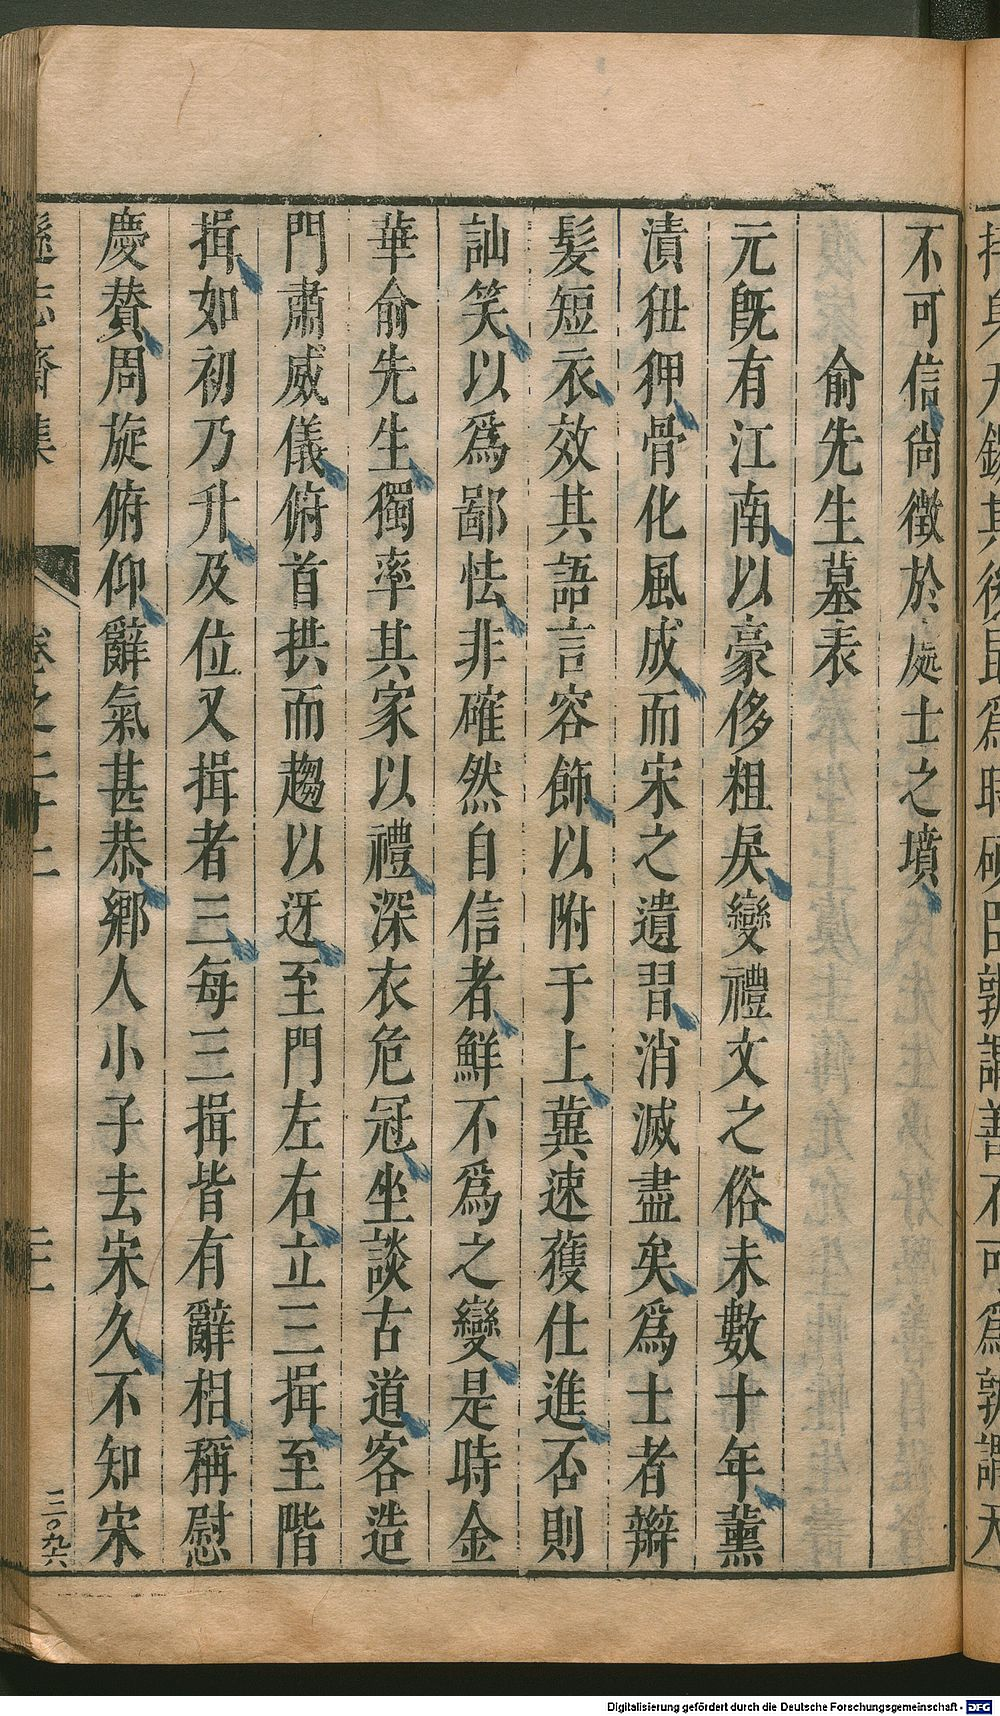 不可信尚徵於處士之墳
俞先生墓表
元旣有江南以豪侈粗戾變禮文之俗未數十年薰
漬狃狎骨化風成而宋之遺習消滅盡矣爲士者辮
髮短衣效其語言容飾以附于上冀速獲仕進否則
訕笑以爲鄙怯非確然自信者鮮不爲之變是時金
華俞先生獨率其家以禮深衣危冠坐談古道客造
門肅威儀俯首拱而趨以迓至門左右立三揖至階
揖如初乃升及位又揖者三每三揖皆有辭相稱慰
慶賛周旋俯仰辭氣甚恭鄉人小子去宋久不知宋
遜志齋集
卷之二十二
三〇九六
Digitalisierung gefördert durch die Deutsche Forschungsgemeinschaft - DFG